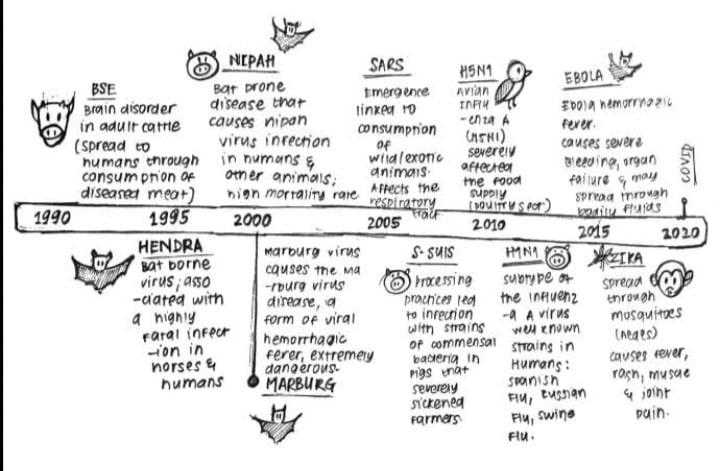 BSE
Brain disorder
in adult cattle
(spread to
humans through
consumption of
diseased meat)
NIPAH
Bat prone
disease that
causes nipah
virus infection
in humans &
other animals;
high mortality rate
SARS
Emergence
linked to
consumption
of
wild/exotic
animals.
Affects the
respiratory
tract
H5N1
Avian
Influ
-enza A
(H5N1)
severely
affected
the food
supply
(poultry spot)
EBOLA
Ebola hemorrhagic
fever.
causes severe
bleeding, organ
failure & may
spread through
bodily fluids
COVID
1990 1995 2000 2005 2010 2015 2020
HENDRA
Bat borne
virus; asso
-ciated with
a highly
fatal infect
-ion in
horses &
humans
marburg virus
causes the ma
-rburg virus
disease, a
form of viral
hemorrhagic
fever, extremely
dangerous-
MARBURG
S-SUIS
processing
practices led
to infection
with strains
of commensal
bacteria in
pigs that
severely
sickened
farmers.
H1N1
subtype of
the influenz
-a A virus
well known
strains in
Humans:
spanish
Flu, Russian
Flu, swine
Flu.
ZIKA
spread
through
mosquitoes
(Aedes)
causes fever,
rash, muscle
& joint
pain.